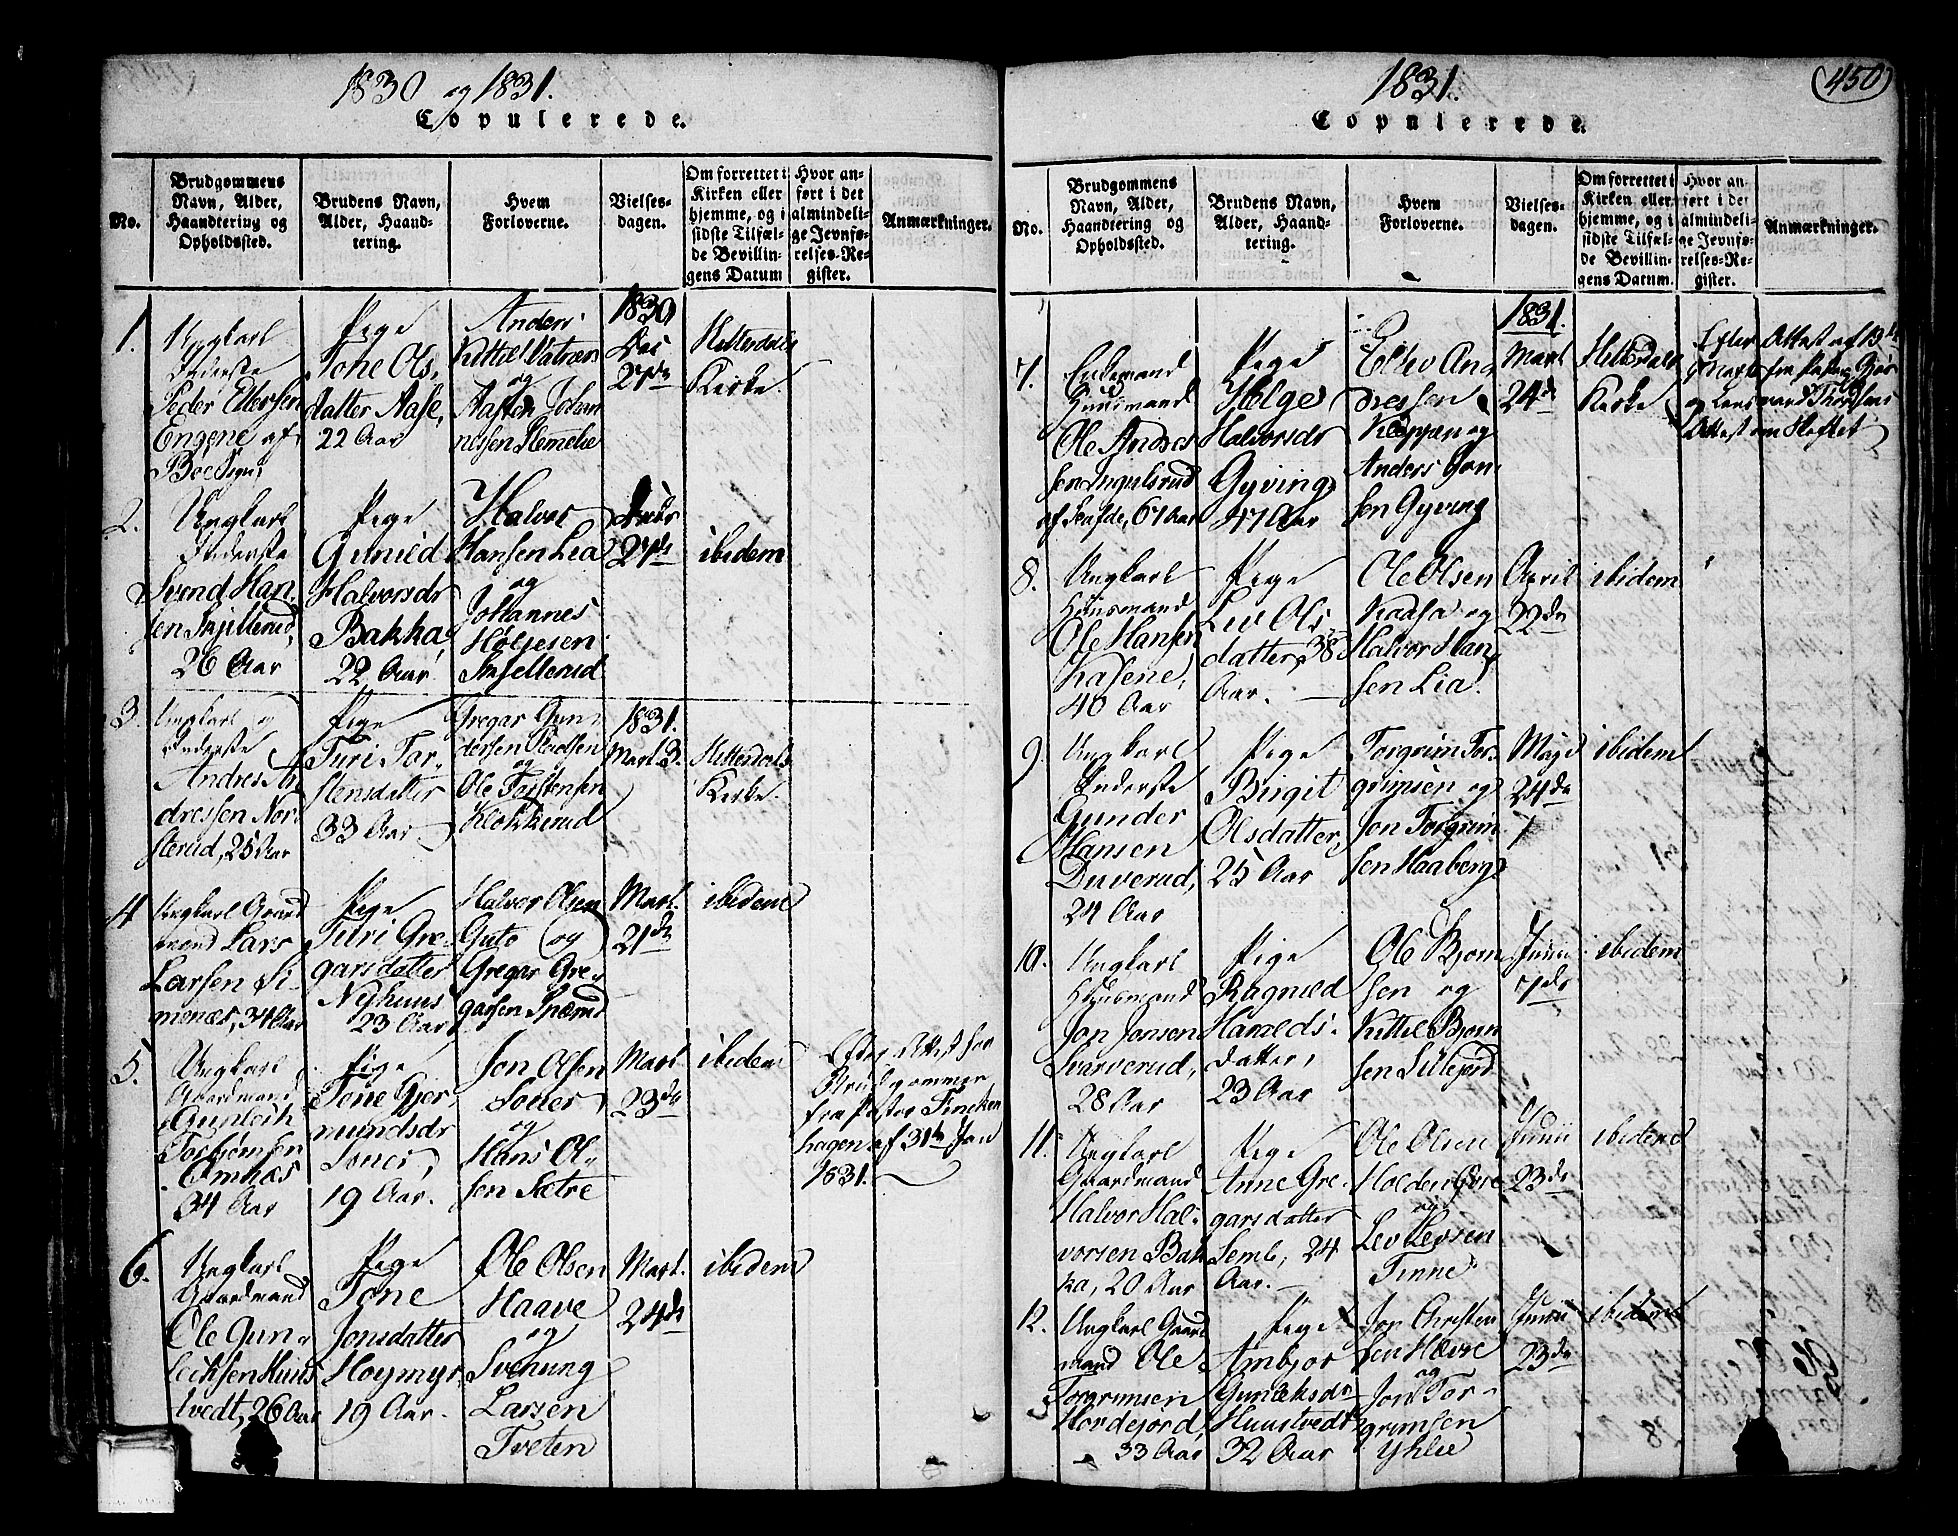 1830 og 1831.
Copulerede.
No.
Brudgommens
Navn, Alder,
Haandtering og
Opholdssted.
Brudens Navn,
Alder, Haand-
tering.
Hvem
Forloverne.
Vielses-
dagen.
Om forrettet i
Kirken eller
hjemme, og i
sidste Tilfæl-
de Bevillin-
gens Datum
Hvor an-
ført i det
almindeli-
ge Jevnfø-
relses-Re-
gister.
Anmærkninger.
1.
Ungkarl
Inderste
Peder Ellefsen
Engene af
Bøe Sogn,
Pige
Tone Ols-
datter Aase,
22 Aar
Anders
Kittil
og
Aasten Johan-
nessen
1830
Dec
27de
Hitterdals
Kirke.
2.
Ungkarl
Inderste
Svend Han-
sen Skjellerud,
26 Aar
Pige
Gunild
Halvorsdr
Bakka,
22 Aar
Halvor
Hansen Lia
og
Johannes
Høljesen
Skjellerud
27de
ibidem
3.
Ungkarl og
Inderste
Andres An-
dressen Nor-
sterud, 25 Aar
Pige
Turi Tor-
stensdatter
33 Aar.
Gregar Gun-
dersen
og
Ole Torstensen
Klokkerud
1831.
Mart. 3.
Hitterdals
Kirke.
4
Ungkarl Gaard-
mand Lars
Larsen Si-
menæs, 34 Aar
Pige
Turi Gre-
garsdatter
Nyhuus
23 Aar
Halvor Olsen
Guto og
Gregar Gre-
garsen
Mart.
21de
ibidem
5.
Ungkarl
Gaardmand
Gunleik
Torbjørnsen
Omnæs
34 Aar
Pige
Tone Gjer-
mundsdr
19 Aar.
Jon Olsen
og
Hans Ol-
sen Sætre
Mart.
23de
ibidem
Efter Attest for
Brudgommen
fra Pastor Fincken-
hagen af 31te Jan
1831.
6.
Ungkarl
Gaardmand
Ole Gun-
leiksen Huus-
tvedt, 26 Aar
Pige
Tone
Jonsdatter
Høymyr,
19 Aar.
Ole Olsen
Haave
og
Svenung
Larsen
Tveten
Mart.
24de
ibidem
1831.
450
Copulerede.
No.
Brudgommens
Navn, Alder,
Haandtering og
Opholdssted.
Brudens Navn,
Alder, Haand-
tering.
Hvem
Forloverne.
Vielses-
dagen.
Om forrettet i
Kirken eller
hjemme, og i
sidste Tilfæl-
de Bevillin-
gens Datum.
Hvor an-
ført i det
almindeli-
ge Jevnfø-
relses-Re-
gister.
Anmærkninger.
7.
Enkemand
Huusmand
Ole Andres-
sen Ingulsrud
af 67 Aar
Pige
Helge
Halvorsdr
Gyving
47 Aar
Ellev An-
dressen
Kleppen og
Anders Jon-
sen Gyving
1831.
Mart
24de
Hitterdals
Kirke
Efter Attest af 13de
Marts fra Pastor
og Lensmand
Attest om Skiftet
8.
Ungkarl
Huusmand
Ole Hansen
Kasene,
40 Aar
Pige
Liv Ols-
datter, 38
Aar.
Ole Olsen
Kaasa og
Halvor Han-
sen Lia.
April
22de
ibidem
9.
Ungkarl
Inderste
Gunder
Hansen
Duverud,
24 Aar
Pige
Birgit
Olsdatter,
25 Aar
Torgrim Tor-
grimsen og
Jon Torgrim-
sen Haaberg
Maje
24de
ibidem
10.
Ungkarl
Huusmand
Jon Jonsen
Svarverud,
28 Aar
Pige
Ragnild
Haralds-
datter,
23 Aar
Ole Bjørn-
sen og
Kittil Bjørn-
sen Lillejord
Junii
7de
ibidem
11.
Ungkarl
Gaardmand
Halvor Hal-
vorsen Bak-
ka, 20 Aar
Pige
Anne Gre-
garsdatter
Semb, 24
Aar.
Ole Olsen
Holden Øvre
og
Lev Levsen
Finne
Junii
23de
ibidem
12.
Ungkarl Gaard-
mand Ole
Torgrimsen
Hordejord,
33 Aar
Pige
Ambjør
Gunleksdr
Huustvedt
32 Aar
Jon Christen-
sen Hævre
og
Jon Tor-
grimsen
Yhlie
Junii
23de
ibidem